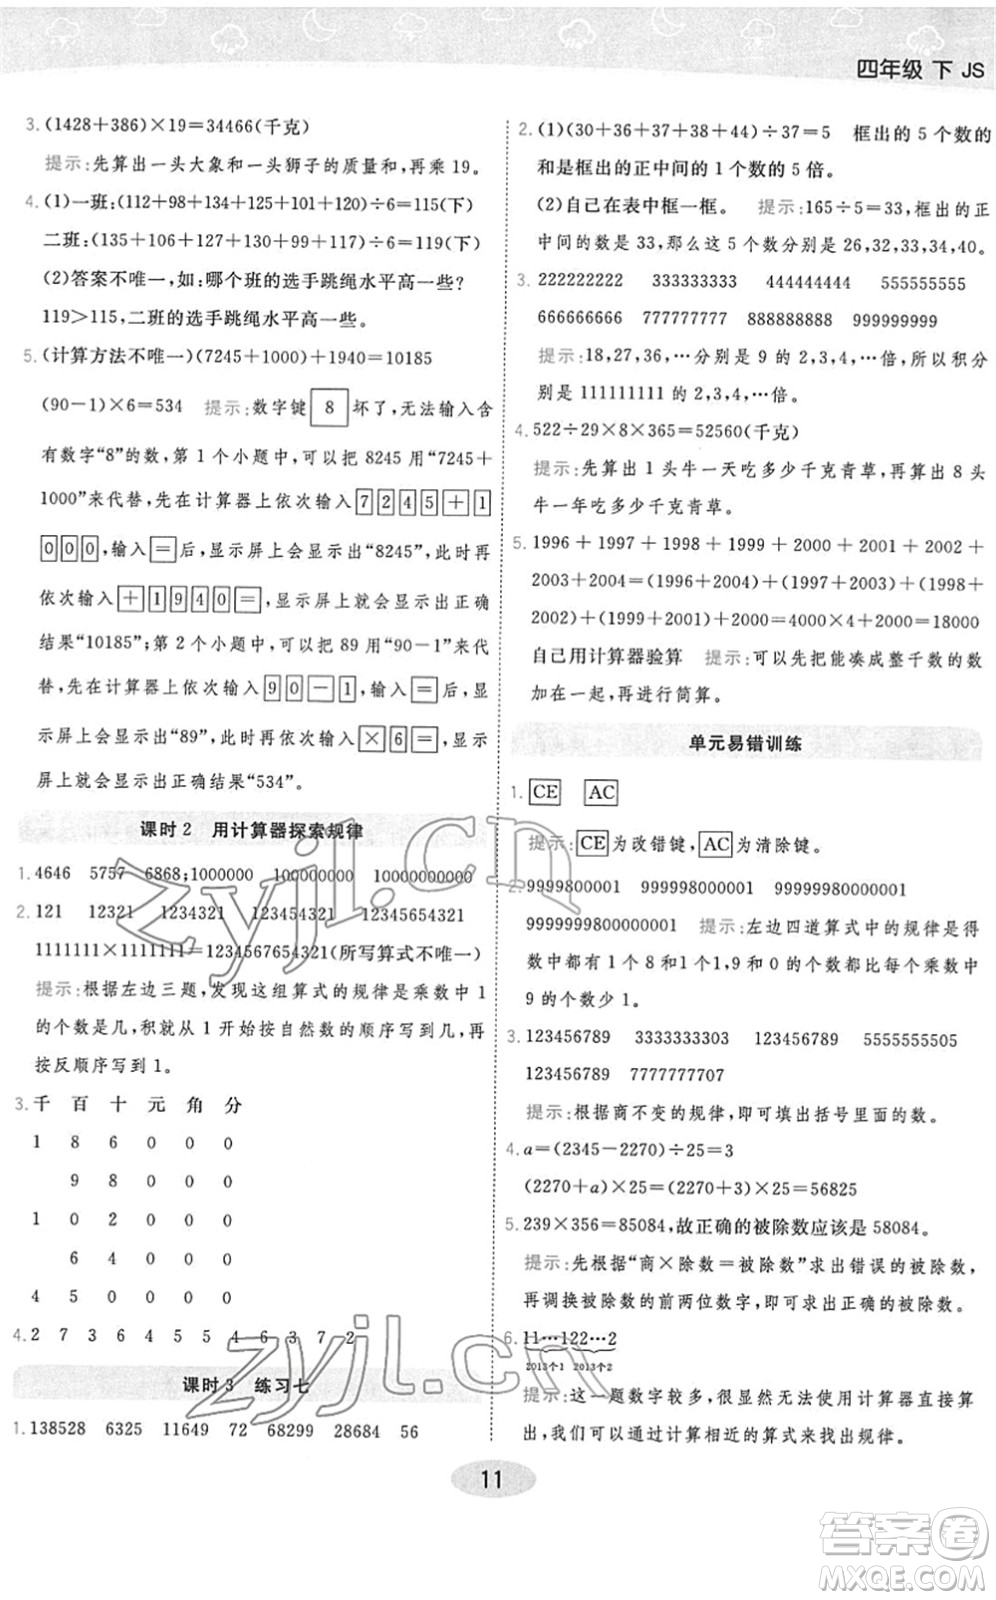 四年级 下 JS
3. (1428+386)×19=34466(千克)
提示:先算出一头大象和一头狮子的质量和,再乘 19。
4. (1)一班:(112+98+134+125+101+120)÷6=115(下)
二班:(135+106+127+130+100+116)÷6=119(下)
(2)答案不唯一,如:哪个班的选手跳绳水平高一些?
119>115,二班的选手跳绳水平高一些。
5. (计算方法不唯一)(7245+1000)+1940=10185
(90-1)×6=534 提示:数字键 8 坏了,无法输入含
有数字“8”的数,第 1 个小题中,可以把 8245 用“7245+
1000”来代替,先在计算器上依次输入 7 2 4 5 + 1
0 0 0,输入 = 后,显示屏上会显示出“8245”,此时再
依次输入 + 1 9 4 0 =,显示屏上会显示出正确
结果“10185”;第 2 个小题中,可以把 89 用“90-1”来代
替,先在计算器上依次输入 9 0 - 1,输入 = 后,显
示屏上会显示出“89”,此时再依次输入 × 6 =,显示
屏上就会显示出正确结果“534”。
课时 2 用计算器探索规律
1. 4646 5757 6868;1000000 100000000 10000000000
2. 121 12321 1234321 123454321 12345654321
1111111×1111111=1234567654321(所写算式不唯一)
提示:根据左边三题,发现这组算式的规律是乘数中 1
的个数是几,积就从 1 开始按自然数的顺序写到几,再
按反顺序写到 1。
3. 千 百 十 元 角 分
1 8 6 0 0 0
9 8 0 0 0
1 0 2 0 0 0
6 4 0 0 0
4 5 0 0 0 0
4. 2 7 3 6 4 5 5 4 6 3 7 2
课时 3 练习七
1. 138528 6325 11649 72 68299 28684 56
2. (1)(30+36+37+38+44)÷37=5 框出的 5 个数的
和是框出的正中间的 1 个数的 5 倍。
(2)自己在表中框一框。 提示:165÷5=33,框出的正
中间的数是 33,那么这 5 个数分别是 26,32,33,34,40。
3. 222222222 333333333 444444444 555555555
666666666 777777777 888888888 999999999
提示:18,27,36,…分别是 9 的 2,3,4,…倍,所以积分
别是 111111111 的 2,3,4,…倍。
4. 522÷29×8×365=52560(千克)
提示:先算出 1 头牛一天吃多少千克青草,再算出 8 头
牛一年吃多少千克青草。
5. 1996+1997+1998+1999+2000+2001+2002+
2003+2004=(1996+2004)+(1997+2003)+(1998
+2002)+(1999+2001)+2000=4000×4+2000=18000
自己用计算器验算 提示:可以先把能凑成整千数的数
加在一起,再进行简算。
单元易错训练
1. CE AC
提示:CE为改错键,AC为清除键。
2. 9999800001 999998000001 99999980000001
9999999800000001 提示:左边四道算式中的规律是得
数中有 1 个 8 和1个 1,9 和 0 的个数比每个乘数中
9 的个数少 1。
3. 123456789 3333333303 123456789 5555555505
123456789 7777777707
提示:根据商不变的规律,即可填出括号里面的数。
4. a=(2345-2270)÷25=3
(2270+a)×25=(2270+3)×25=56825
5. 239×356=85084,故正确的被除数应该是 58084。
提示:先根据“商×除数=被除数”求出错误的被除数,
再调换被除数的前两位数字,即可求出正确的被除数。
6. 11…122…2
2013个1 2013个2
提示:这一题数字较多,很显然无法使用计算器直接算
出,我们可以通过计算相近的算式来找出规律。
11
zyjl.cn
zyjl.cn
答案卷
MXQE.COM